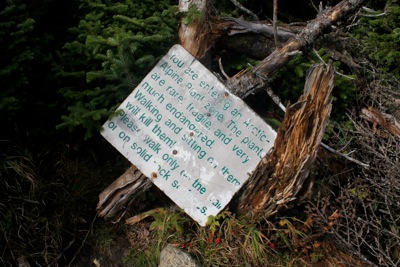 You are entering an Arctic
Alpine Zone. The plants
are rare, fragile and very
much endangered.
Walking and sitting on them
will kill them.
Please walk only on the
or on solid rock